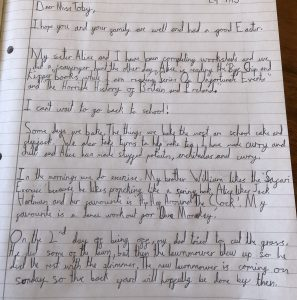 Dear Miss Toby,
I hope you and your family are well and had a good Easter.
My sister Alice and I have been completing worksheets and we
did a scavenger hunt the other day. Alice is reading the
Kipper books while I am reading Series Of Unfortunate Events
and the Horrible History of Britain and Ireland.
I can't wait to go back to school!
Some days we bake. The things we bake the most are school cake and
flapjack. We also take turns to help make tea. I have made curry and
chilli and Alice has made stuffed potatoes, enchiladas and curry.
In the mornings we do exercise. My brother William likes the Safari
because he likes pronking like a spring bok, Alice likes Jack
Hartmann and her favourite is Hip Hop Around the Clock. My
favourite is a dance work out for
On the 2nd day of being off, my dad tried to cut the grass.
He did some of the lawn, but then the lawnmower blew up so he
did the rest with the strimmer, the new lawnmower is coming on
Sunday so the back yard will hopefully be done by then.